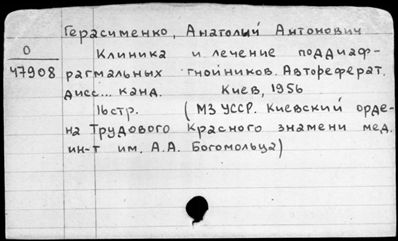 Герасименко, Анатолий Антонович
О
47908
Клиника и лечение поддиаф-
рагмальных гнойников. Автореферат.
дисс... канд. Киев, 1956
16 стр. (МЗ УССР. Киевский орде-
на Трудового Красного знамени мед.
ин-т им. А.А. Богомольца)